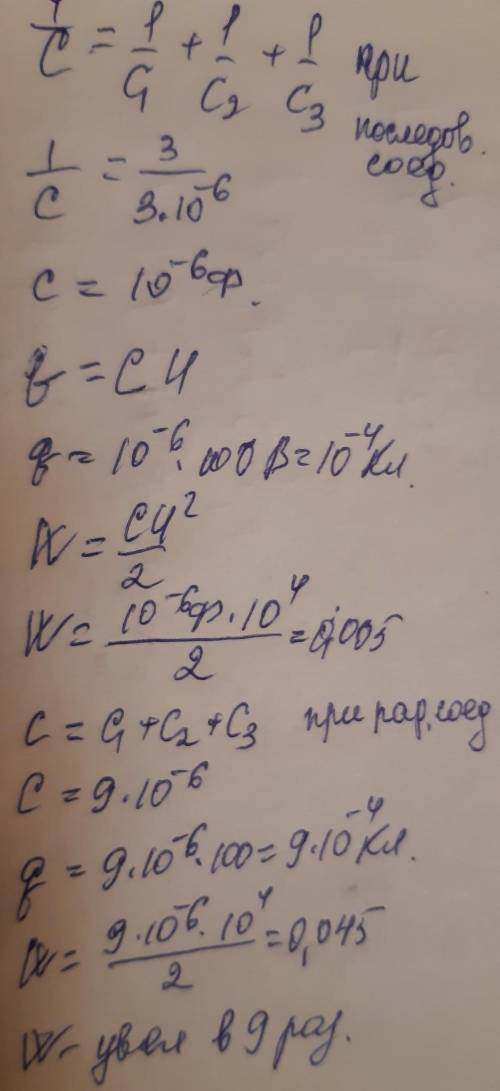 1/C = 1/C1 + 1/C2 + 1/C3 при
последов.
соед.
1/C = 3/3·10⁻⁶
C = 10⁻⁶ф.
q = CU
q = 10⁻⁶·100 В = 10⁻⁴Кл.
W = CU²/2
W = 10⁻⁶ф·10⁴/2 = 0,005
C = C1 + C2 + C3 при пар. соед
C = 9·10⁻⁶
q = 9·10⁻⁶·100 = 9·10⁻⁴Кл.
W = 9·10⁻⁶·10⁴/2 = 0,045
W - увел в 9 раз.